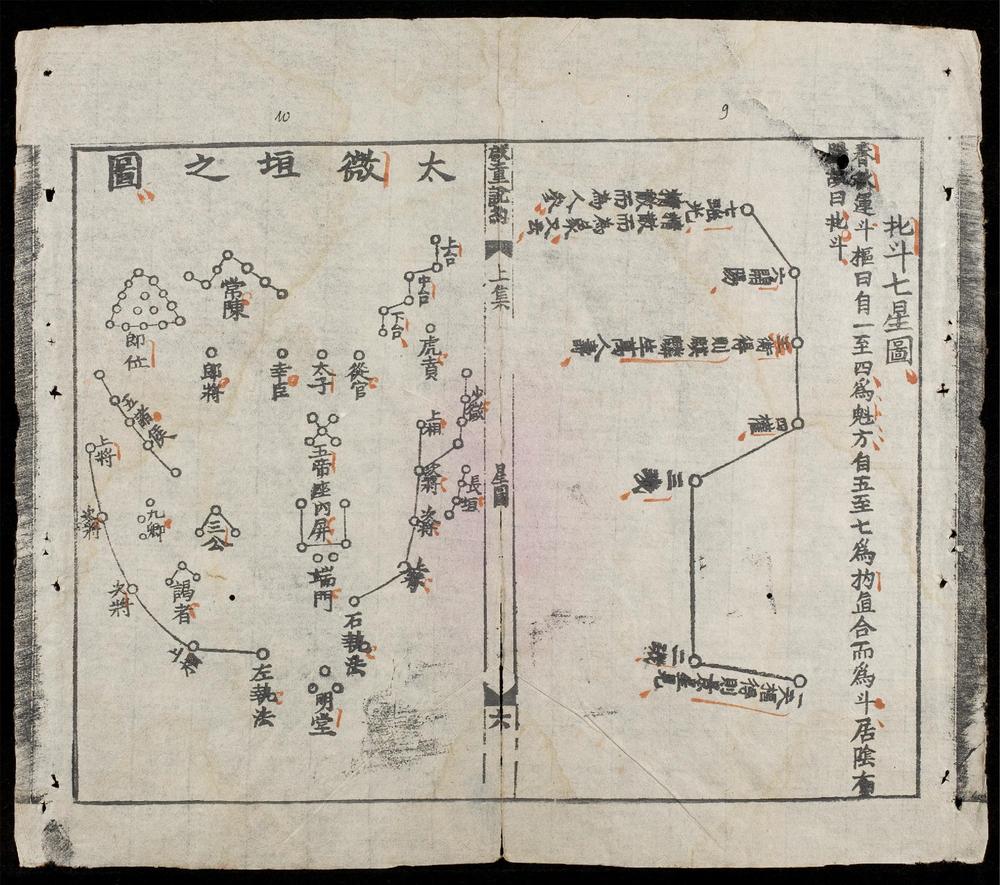 9
北斗七星圖
春秋運斗樞曰自一至四爲魁方自五至七爲杓直合而爲斗居陰布
陽故曰北斗
七瑤光
精散而為人參
精散而為象又去
六開陽
五衡
得則麒麟生萬人壽
四權
三機
二璇
一天樞
得則景星見
啟童說約
上集
星圖
六
10
太微垣之圖
上台
中台
下台
虎賁
少微
長垣
上相
次將
常陳
郎位
郎將
幸臣
太子
從官
五諸侯
五帝座
內屏
端門
上將
次將
九卿
三公
謁者
次將
上相
左執法
石執法
明堂